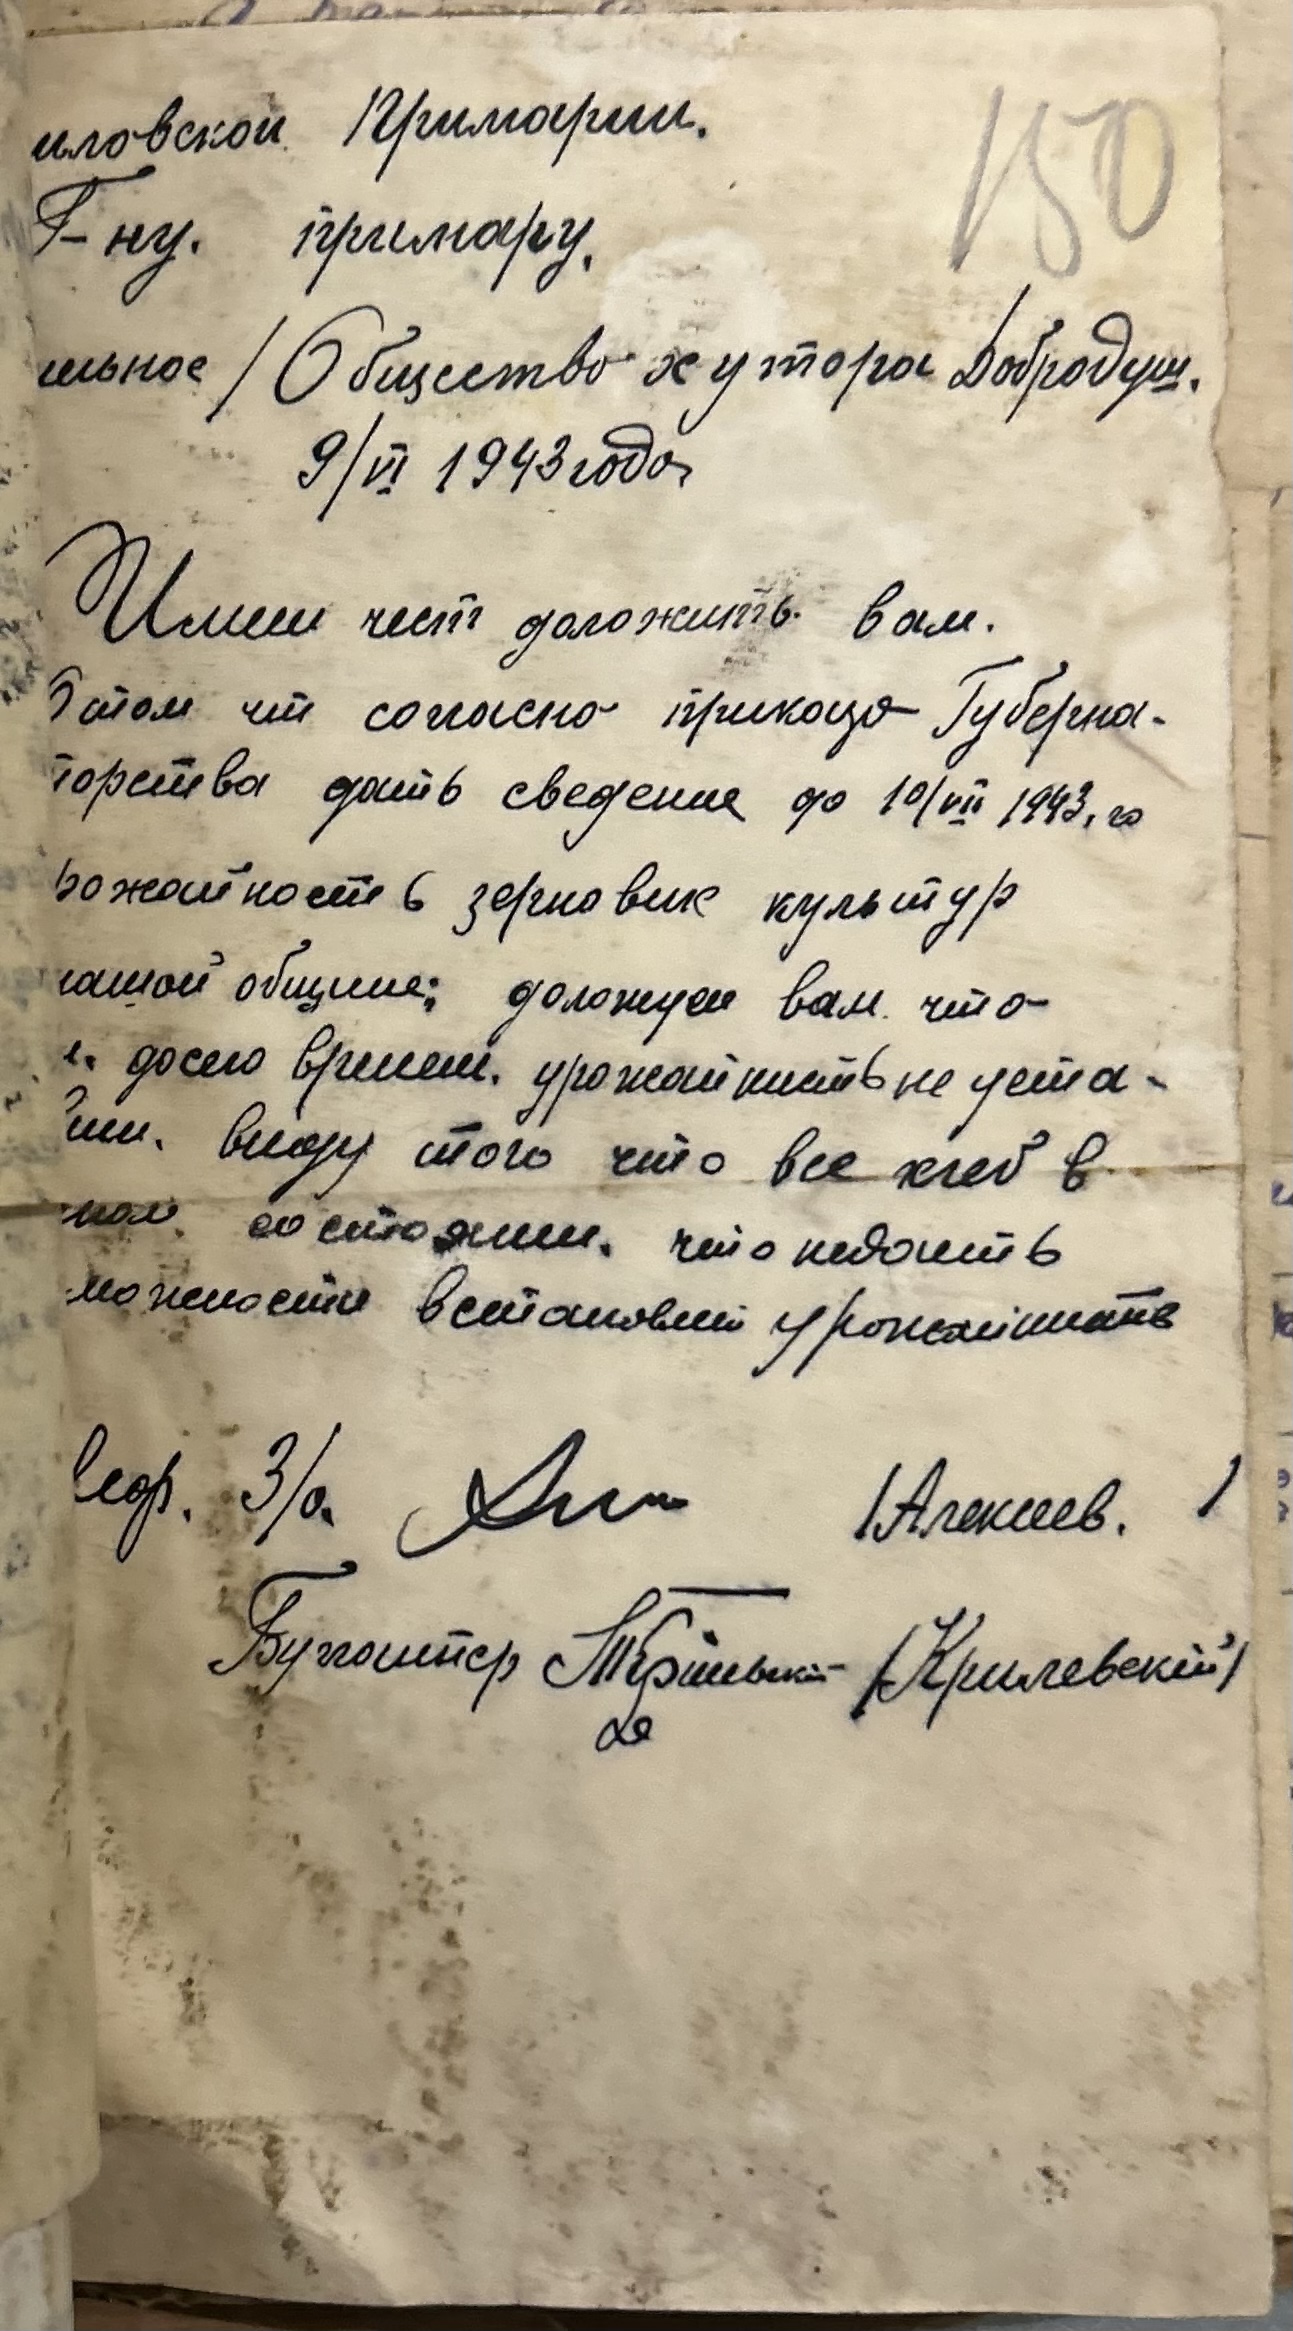 150
иловской Примарии.
Г-ну. примару.
льное / Общество хутора Добродуш.
9/VI 1943 года
Имеи чест доложить вам.
Отом что согласно приказа Губерна-
торства дать сведение до 10/VII 1943. го
рожайность зерновик культур
нашой общине; доложуем вам что
досего времени. урожайность не уста-
виду того что все хлеб в
состоянии. что недаить
можности встановит урожайность
Пред. З/о. /Алексеев. /
Буггалтер /Крилевский/